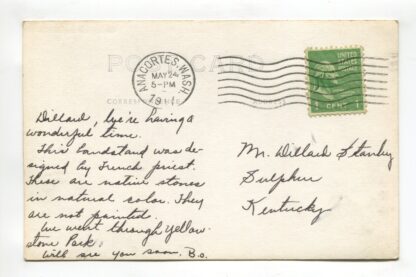 POST CARD
ANACORTES, WASH.
MAY 24
5-PM
19
UNITED STATES
POSTAGE
1 CENT 1
CORRESPONDENCE
ADDRESS
Dillard, we're having a
wonderful time.
This bandstand was de-
signed by French priest.
These are native stones
in natural color. They
are not painted.
We went through Yellow-
stone Park.
Will see you soon. B.O.
Mr. Dillard Stanley
Sulphur
Kentucky